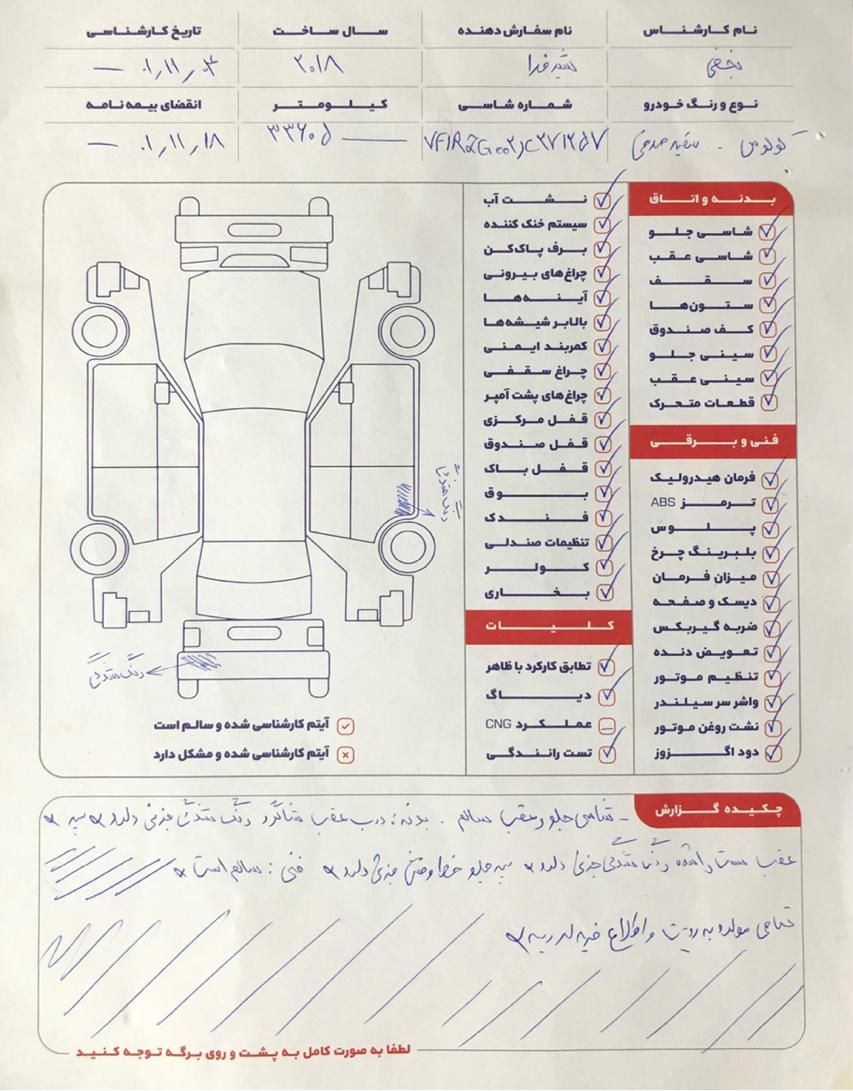 نام کارشناس
نام سفارش دهنده
سال ساخت
تاریخ کارشناسی
نجفی
۲۰۱۸
۰۱٫۱۱٫۰۴
نوع و رنگ خودرو
شماره شاسی
کیلومتر
انقضای بیمه نامه
کولوس - سفید صدفی
۳۳۶۰۵
۰۱٫۱۱٫۱۸
بدنه و اتاق
شاسی جلو
شاسی عقب
سقف
ستون‌ها
کف صندوق
سینی جلو
سینی عقب
قطعات متحرک
فنی و برقی
فرمان هیدرولیک
ترمز ABS
پلوس
بلبرینگ چرخ
میزان فرمان
دیسک و صفحه
ضربه گیربکس
تعویض دنده
تنظیم موتور
واشر سر سیلندر
نشت روغن موتور
دود اگزوز
نشت آب
سیستم خنک کننده
برف پاک‌کن
چراغ‌های بیرونی
آینه‌ها
بالابر شیشه‌ها
کمربند ایمنی
چراغ سقفی
چراغ‌های پشت آمپر
قفل مرکزی
قفل صندوق
قفل باک
بوق
فندک
تنظیمات صندلی
کولر
بخاری
کلیات
تطابق کارکرد با ظاهر
دیاگ
عملکرد CNG
تست رانندگی
رنگ شدگی
رنگ شدگی
آیتم کارشناسی شده و سالم است
آیتم کارشناسی شده و مشکل دارد
چکیده گزارش
- شاسی جلو و عقب سالم . بدنه : درب عقب شاگرد رنگ شدگی جزئی دارد * سپر
عقب سمت راننده رنگ شدگی جزئی دارد * سپر جلو خط و خش جزئی دارد * فنی : سالم است *
تمامی موارد به رویت و اطلاع خریدار رسید *
لطفا به صورت کامل به پشت و روی برگه توجه کنید